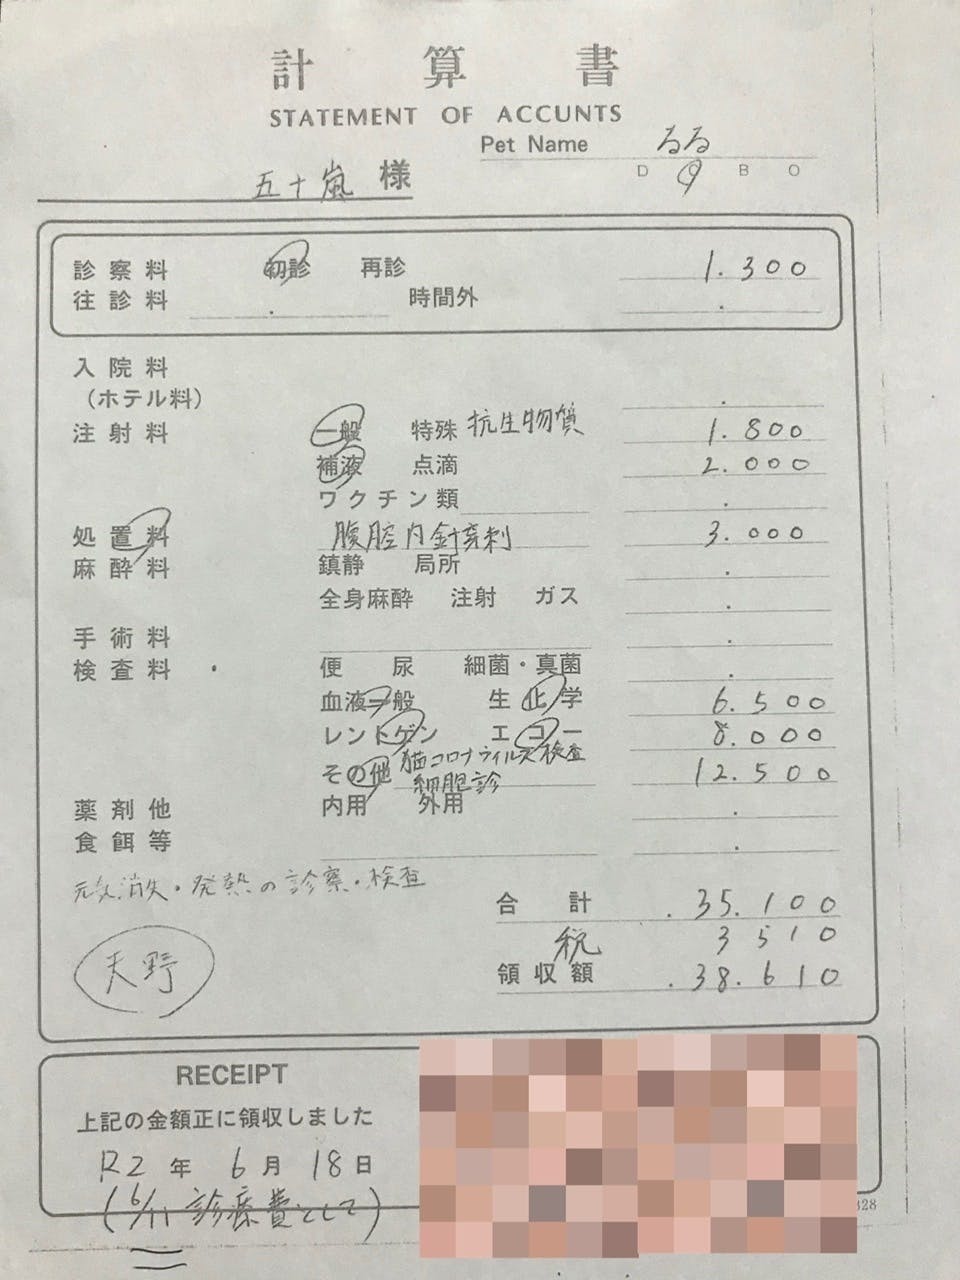 計算書
STATEMENT OF ACCUNTS
Pet Name るる
D C B O
五十嵐 様
診察料 初診 再診 1.300
往診料 . 時間外 .
入院料
(ホテル料) .
注射料 一般 特殊 抗生物質 1.800
補液 点滴 2.000
ワクチン類 .
処置料 腹腔内針穿刺 3.000
麻酔料 鎮静 局所 .
全身麻酔 注射 ガス .
手術料 .
検査料 便 尿 細菌・真菌 .
血液一般 生化学 6.500
レントゲン エコー 8.000
その他 猫コロナウィルス検査 12.500
細胞診
薬剤他 内用 外用 .
食餌等 .
元気消失・発熱の診察・検査
合計 .35.100
税 3510
天野
領収額 .38.610
RECEIPT
上記の金額正に領収しました
R2年 6月 18日
(6/11 診療費として)
328